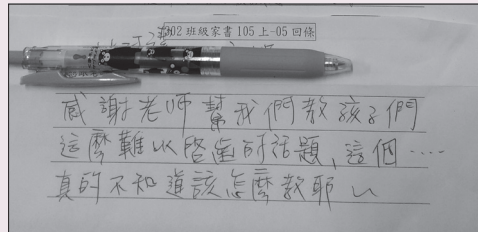 02 班級家書 105 上-05 回條
感謝老師幫我們教孩子們
這麼難以啓齒的話題、這個‥‥
真的不知道該怎麼教耶ㄟ